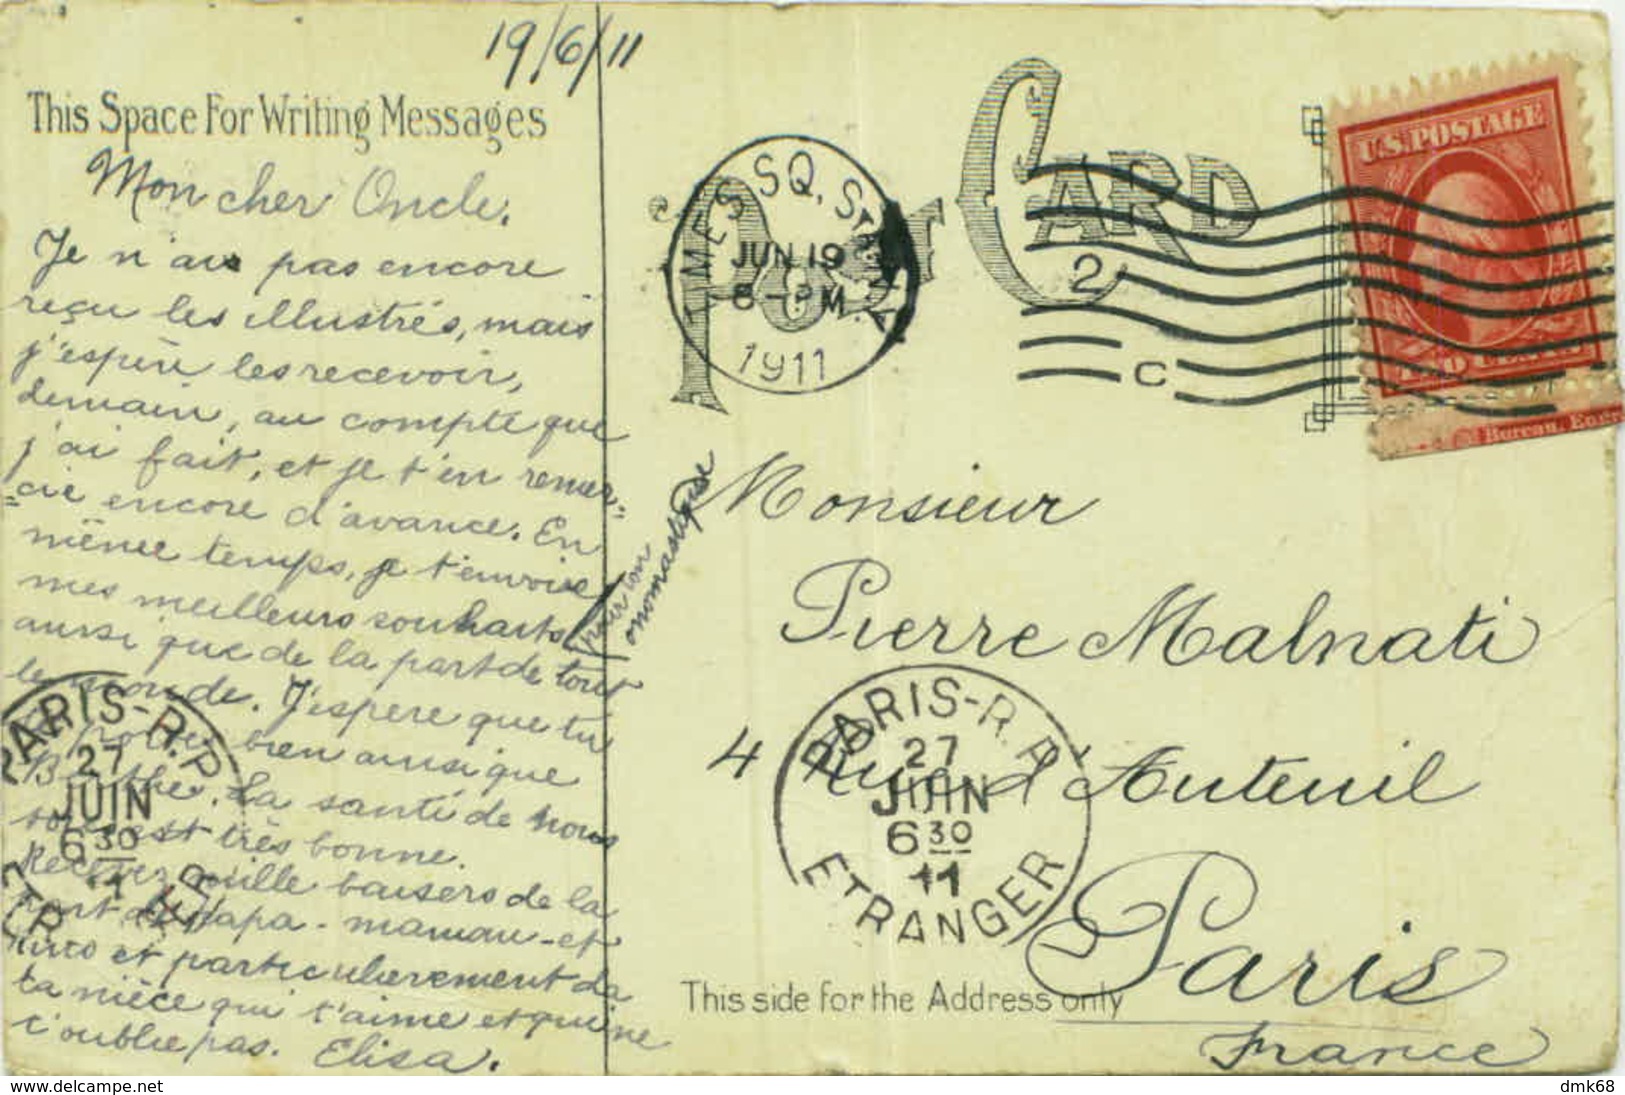 19/6/11
This Space For Writing Messages
Mon cher Oncle.
Je n'ai pas encore
reçu les illustrés, mais
j'espère les recevoir,
demain, au compte que
j'ai fait, et je t'en remer=
=cie encore d'avance. En
même temps, je t'envoie
mes meilleurs souhaits
(pour ton
onomastique
aussi que de la part de tout
le monde. J'espère que tu
bien ainsi que
Berthe. La santé de nous
tous est très bonne.
Recever mille baisers de la
part de papa - maman - et
et particulièrement da
ta nièce qui t'aime et qui ne
t'oublie pas. Elisa.
POST CARD
TIMES SQ. STA. N.Y.
JUN 19
8-PM.
1911
2
C
U.S. POSTAGE
TWO CENTS
Bureau, Engr
Monsieur
Pierre Malnati
4 Rue d'Auteuil
Paris
France
PARIS-R.P.
27
JUIN
6 30
11
ETRANGER
PARIS-R.P.
27
JUIN
6 30
11
ETRANGER
This side for the Address only
delcampe.net
dmk68